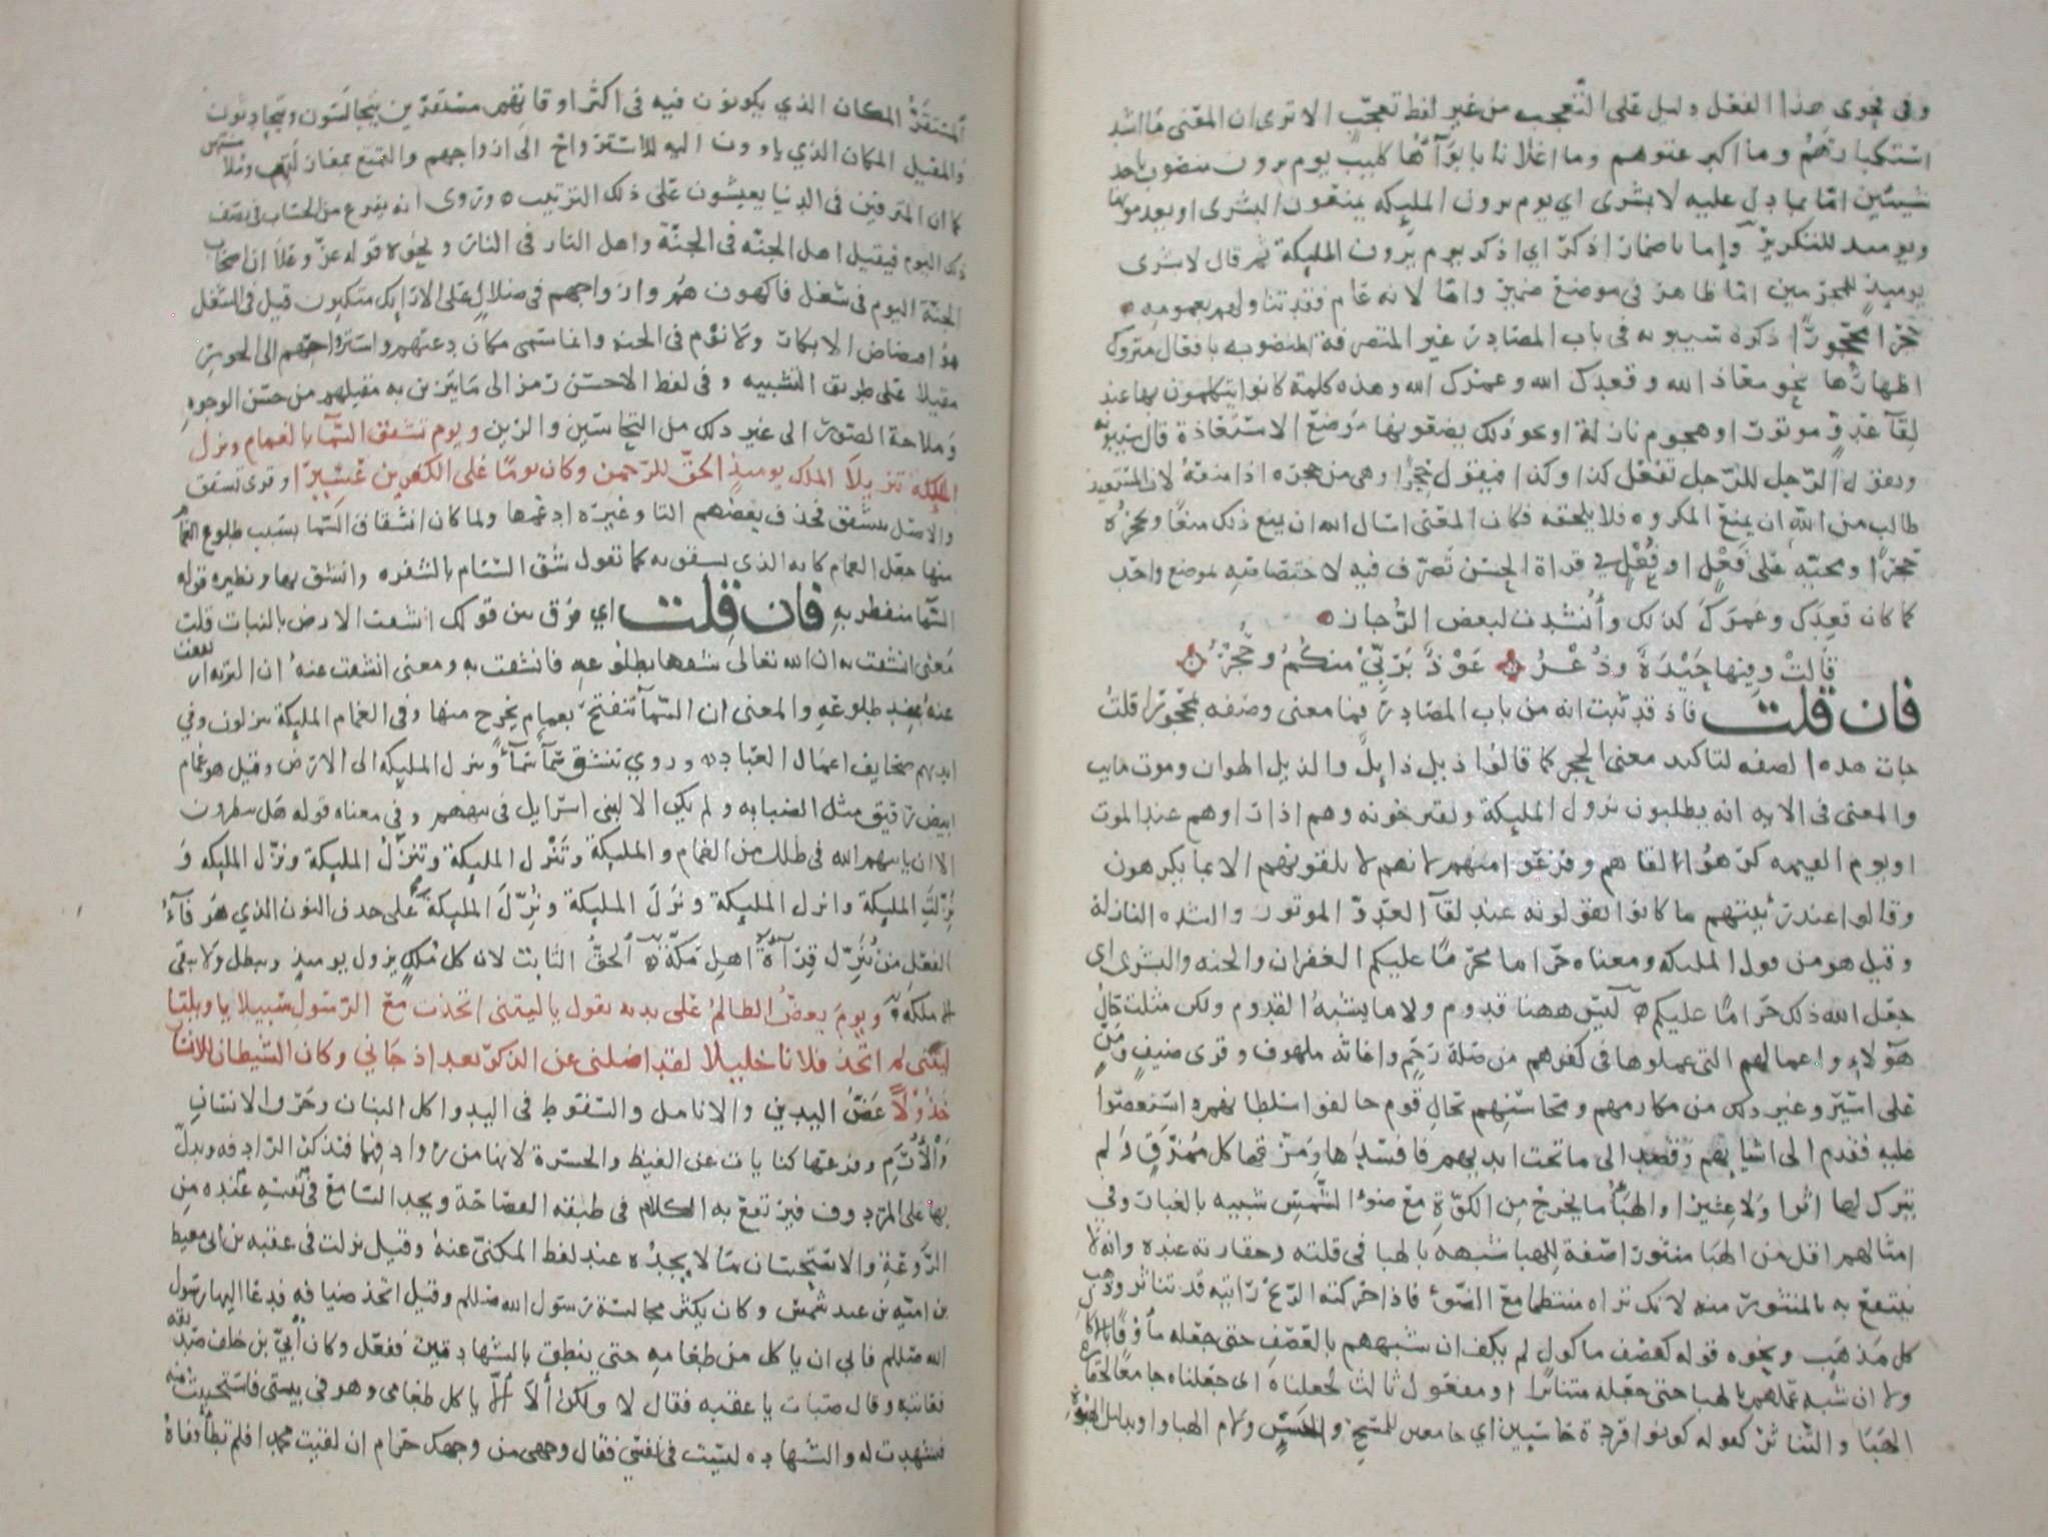 وفى فحوى هذا الفعل دليل على التعجب من غير لفظ تعجب الا ترى ان المعنى ما اشد
استكبارهم وما اكبر عتوهم وما اغلا نابا بوآؤها كليب يوم يرون منصوب باحد
شيئين اما بما دل عليه لا بشرى اي يوم يرون المليكه يمنعون البشرى او يعدمونها
ويوميذ للتكرير واما باضمار اذكر اي اذكر يوم يرون المليكة ثم قال لا بشرى
يوميذ للمجرمين اما ظاهر فى موضع ضمير واما لانه عام فقد تناولهم بعمومه
حجرا محجورا ذكره سيبويه فى باب المصادر غير المتصرفة المنصوبه بافعال متروك
اظهارها نحو معاذ الله وقعدك الله وعمرك الله وهذه كلمة كانوا يتكلمون بها عند
لقآ عدو موتور او هجوم نازلة او نحو ذلك يضعونها موضع الاستعاذة قال سيبويه
ويقول الرجل للرجل تفعل كذا وكذا فيقول حجرا وهى من حجره اذا منعه لان المستعيذ
طالب من الله ان يمنع المكروه فلا يلحقه فكان المعنى اسال الله ان يمنع ذلك منعا ويحجره
حجرا ومجيه على فعل او فعل في قراة الحسن تصرف فيه لاختصاصه بموضع واحد
كما كان قعدك وعمرك كذلك وأنشدت لبعض الرجاز
قالت وفيها حيدة وذعر عوذ بربي منكم وحجر
فان قلت فاذ قد ثبت انه من باب المصادر فما معنى وصفه بمحجورا قلت
جات هذه الصفه لتاكيد معنى الحجر كما قالوا ذيل ذايل والذيل الهوان وموت مايت
والمعنى فى الايه انه يطلبون نزول المليكة ويقترحونه وهم اذا راوهم عند الموت
او يوم القيمه كرهوا القاهم وفزعوا منهم لانهم لا يلقونهم الا بما يكرهون
وقالوا عند رئيتهم ما كانوا يقولونه عند لقآ العدو الموتور والشده النازلة
وقيل هو من قول المليكه ومعناه حراما محرما عليكم الغفران والجنه والبشرى اى
جعل الله ذلك حراما عليكم ليس ههنا قدوم ولا ما يشبه القدوم ولكن مثلت حال
هؤلاء واعمالهم التى عملوها فى كفرهم من صلة رحم واغاثه ملهوف وقرى ضيف ومن
على اسير وغير ذلك من مكارمهم ومحاسنهم بحال قوم خالفوا سلطانهم واستعصوا
عليه فقدم الى اشيائهم وقصد الى ما تحت ايديهم فافسدها ومزقها كل ممزق ولم
يترك لها اثرا ولا عثيرا والهبآ ما يخرج من الكوة مع ضوء الشمس شبيه بالغبار وفي
امثالهم اقل من الهبا منثورا صفة للهبا شبهه بالهبا فى قلته وحقارته عنده وانه لا
ينتفع به بالمنثور منه لانك تراه منتظما مع الضوء فاذا حركته الريح رايته قد تناثر وذهب
كل مذهب ونحوه قوله كعصف ماكول لم يكف ان شبههم بالعصف حتى جعله مأوفا بالاكال
ولا ان شبه عملهم بالهبا حتى جعله متناثرا او مفعول ثالث لجعلناه اى جعلناه جامعا لحقارة
الهبا والتناثر كقوله كونوا قردة خاسيين اي جامعين للمسخ والخسى ولام الهبا واو بدليل الهبوة
المستقر المكان الذي يكونون فيه فى اكثر اوقاتهم مستقرين يتجالسون ويتحادثون
والمقيل المكان الذي ياوون اليه للاسترواح الى ازواجهم والتمتع بمغازلتهن وملامستهن
كما ان المترفين فى الدنيا يعيشون على ذلك الترتيب وتروى انه يفرغ من الحساب فى نصف
ذلك اليوم فيقيل اهل الجنه فى الجنة واهل النار فى النار ونحوه قوله عز وعلا ان اصحاب
الجنة اليوم فى شغل فاكهون هم وازواجهم فى ضلال على الارايك متكيون قيل فى الشغل
هو افتضاض الابكار ولا نوم فى الجنه وانما سمى مكان دعتهم واسترواحهم الى الحور
مقيلا على طريق التشبيه وفى لفظ الاحسن رمز الى ما يتزين به مقيلهم من حسن الوجوه
وملاحة الصور الى غير ذلك من التحاسين والزين ويوم تشقق السمآ بالغمام ونزل
المليكه تنزيلا الملك يوميذ الحق للرحمن وكان يوما على الكفرين عسيرا وقرى تشقق
والاصل تتشقق فحذف بعضهم التا وغيره ادغمها ولما كان انشقاق السما بسبب طلوع الغمام
منها جعل الغمام كانه الذى تشقق به كما تقول شق السنام بالشفره وانشق بها ونظيره قوله
السما منفطر به فان قلت اي فرق بين قولك انشقت الارض بالنبات قلت
معنى انشقت به ان الله تعالى شقها بطلوعه فانشقت به ومعنى انشقت عنه ان التربه ارتفعت
عنه عند طلوعه والمعنى ان السمآ تتفتح بغمام يخرج منها وفى الغمام المليكة ينزلون وفي
ايديهم صحايف اعمال العباد وروي تنشق سمآ سمآ وتنزل المليكه الى الارض وقيل هو غمام
ابيض رقيق مثل الضبابه ولم يكن الا لبنى اسرايل فى تيههم وفى معناه قوله هل ينظرون
الا ان ياتيهم الله فى ظلل من الغمام والمليكة وتنزل المليكة وتنزل المليكة ونزل المليكه و
نزلت المليكة وانزل المليكة ونزل المليكة ونزل المليكة على حذف النون الذي هو فآء
الفعل من ننزل قرآة اهل مكة الحق الثابت لان كل ملك يزول يوميذ ويبطل ولا يبقى
الا ملكه ويوم يعض الظالم على يديه يقول ياليتنى اتخذت مع الرسول سبيلا ياويلتا
ليتنى لم اتخذ فلانا خليلا لقد اضلنى عن الذكر بعد اذ جاني وكان الشيطان للانسان
خذولا عض اليدين والانامل والسقوط فى اليد واكل البنان وحرق الاسنان
والأرم وقرعها كنايات عن الغيظ والحسرة لانها من روادفها فتذكر الرادفه ويدل
بها على المردوف فيرتفع به الكلام فى طبقه الفصاحة ويجد السامع فى نفسه عنده من
الروعة والاستحسان ما لا يجده عند لفظ المكنى عنه وقيل نزلت فى عقبه بن ابى معيط
بن اميه بن عبد شمس وكان يكثر مجالسة رسول الله صللم وقيل اتخذ ضيافه فدعا اليها رسول
الله صللم فابى ان ياكل من طعامه حتى ينطق بالشهادتين ففعل وكان أبي بن خلف صديقه
فعاتبه وقال صبات يا عقبه فقال لا ولكن ألا ألا ياكل طعامى وهو فى بيتى فاستحييت منه
فشهدت له والشهاده ليست فى نفسي فقال وجهى من وجهك حرام ان لقيت محمدا فلم تطأ قفاه